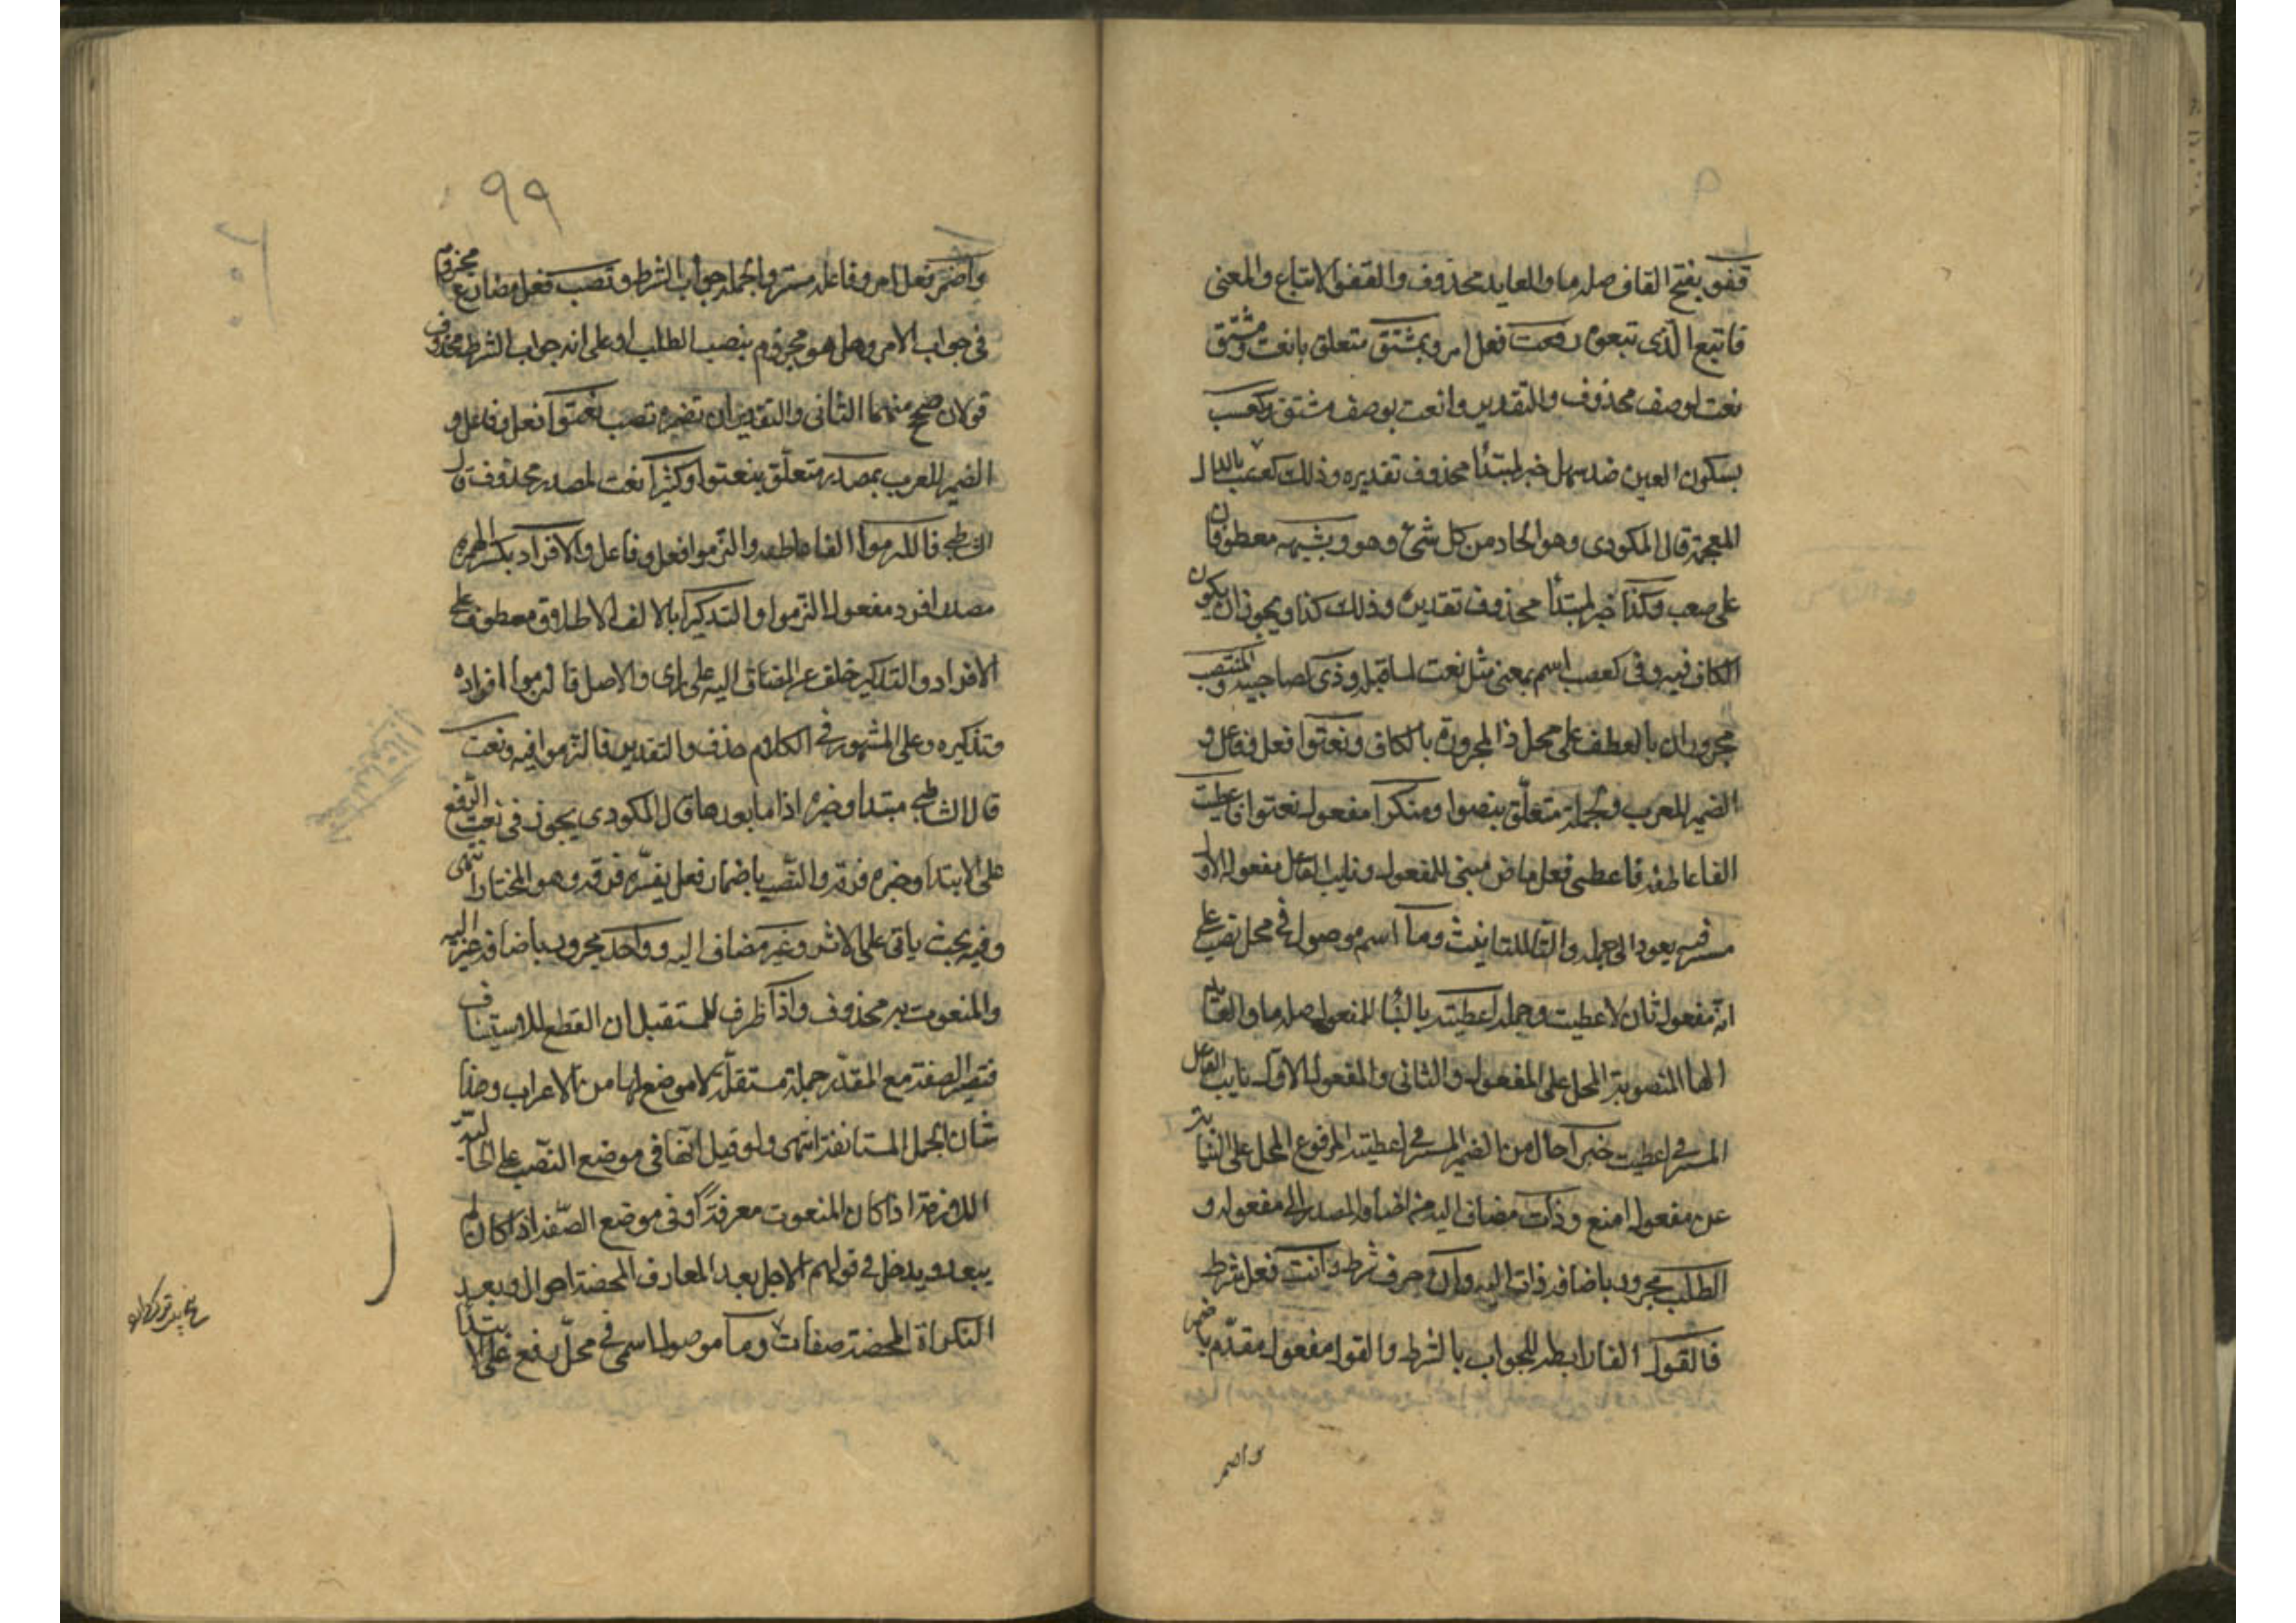 قفو بفتح القاف صلة ما والعايد محذوف والقفو الاتباع والمعنى
فاتبع الذى تبعوه وانعت فعل امر وبمشتق متعلق بانعت ومشتق
نعت لوصف محذوف والتقدير وانعت بوصف مشتق وكصعب
بسكون العين ضد سهل خبر لمبتدأ محذوف تقديره وذلك كصعب بالذال
المعجمة قال المكودى وهو الحاد من كل شئ وهو وبشبهه معطوفان
على صعب وكذا خبر لمبتدأ محذوف تقديره وذلك كذا ويجوز ان يكون
الكاف فيه وفى كصعب اسم بمعنى مثل نعت لما قبله وذى كصاحب والمنتصب
مجروران بالعطف على محل ذا المجرورة بالكاف ونعتوا فعل وفاعل و
الضمير للعرب وبجملة متعلق بنعتوا ومنكرا مفعول نعتوا فاعطيت
الفا عاطفة فاعطى فعل ماض مبنى للمفعول ونايب الفاعل مفعوله الاول
مستتر فيه يعود الى جملة والتا للتانيث وما اسم موصول فى محل نصب على
انه مفعول ثان لاعطيت وجملة اعطيته بالبنا للمفعول صلة ما والعايد
الها المنصوبة المحل على المفعول والثانى والمفعول الاول نايب الفاعل
المستتر فى اعطيت خبرا حال من الضمير المستتر فى اعطيته المرفوع المحل على النيابة
عن مفعول امنع وذات مضاف اليه من اضافة المصدر الى مفعوله و
الطلب مجرور باضافة ذات اليه وان حرف شرط وانت فعل شرط
فالقول الفا رابطة للجواب بالشرط والقول مفعول مقدم باضمر
واضمر
٩٩
واضمر فعل امر وفاعله مستتر والجملة جواب الشرط وتصب فعل مضارع مجزوم
فى جواب الامر وهل هو مجزوم بنصب الطلب او على انه جواب الشرط محذوف
قولان صحح منهما الثانى والتقدير ان تضمره تصب نعتوا فعل وفاعل و
الضمير للعرب بمصدر متعلق بنعتوا وكثيرا نعت لمصدر محذوف قال
الشاطبى فالتزموا الفا عاطفة والتزموا فعل وفاعل والافراد بكسر الهمزة
مصدر افرد مفعول التزموا والتذكيرا بالالف الاطلاق معطوف على
الافراد والتذكير خلف عن المضاف اليه على راى والاصل فالتزموا افراده
وتذكيره وعلى المشهور فى الكلام حذف والتقدير فالتزموا فيه ونعت
قال الشاطبى مبتدا وخبره اذا ما بعدها قال المكودى يجوز فى نعت الرفع
على الابتدا وخبره فرقه والنصب باضمار فعل يفسره فرقه وهو المختار انتهى
وفيه بحث ياتى على الاثر وغير مضاف اليه وواحد مجرور باضافة غير اليه
والمنعوت به محذوف واذا ظرف للمستقبل ان القطع للاستيناف
فتصير الصفة مع المقدر جملة مستقلة لا موضع لها من الاعراب وهذا
شان الجمل المستانفة انتهى ولو قيل انها فى موضع النصب على الحالية
اللازمة اذا كان المنعوت معرفة او فى موضع الصفة اذا كان لم
يبعد ويدخل فى قولهم الاجل بعد المعارف المحضة احوال وبعد
النكراة المحضة صفات وما موصول اسمى فى محل رفع على الابتدا